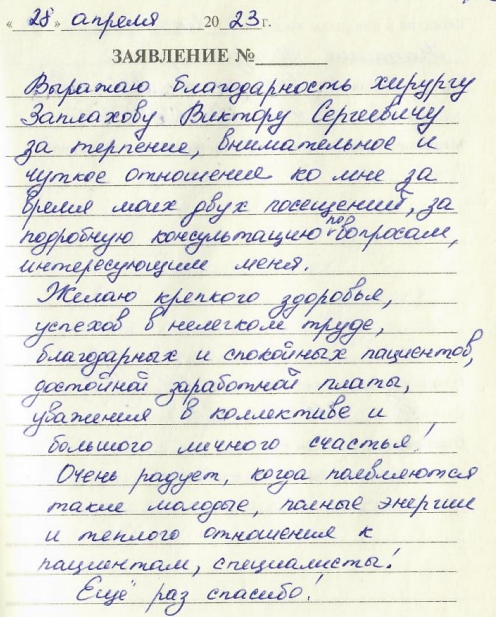 « 28 » апреля 20 23 г.
ЗАЯВЛЕНИЕ №
Выражаю благодарность хирургу
Заплахову Виктору Сергеевичу
за терпение, внимательное и
чуткое отношение ко мне за
время моих двух посещений, за
подробную консультацию по вопросам,
интересующим меня.
Желаю крепкого здоровья,
успехов в нелегком труде,
благодарных и спокойных пациентов,
достойной заработной платы,
уважения в коллективе и
большого личного счастья!
Очень радует, когда появляются
такие молодые, полные энергии
и теплого отношения к
пациентам, специалисты!
Ещё раз спасибо!